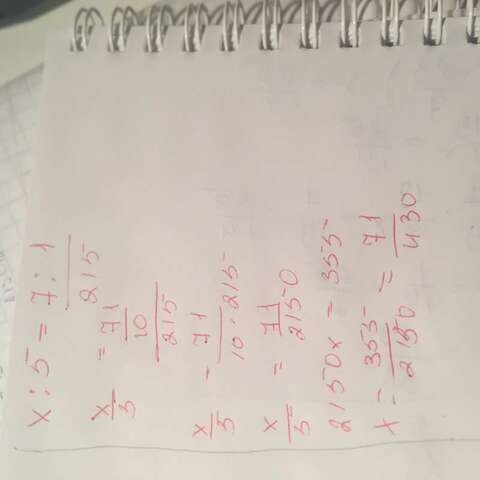 x : 5 = 7 : 1 / 215
x/5 = 71/10 / 215
x/5 = 71 / 10 · 215
x/5 = 71/2150
2150x = 355
x = 355/2150 = 71/430